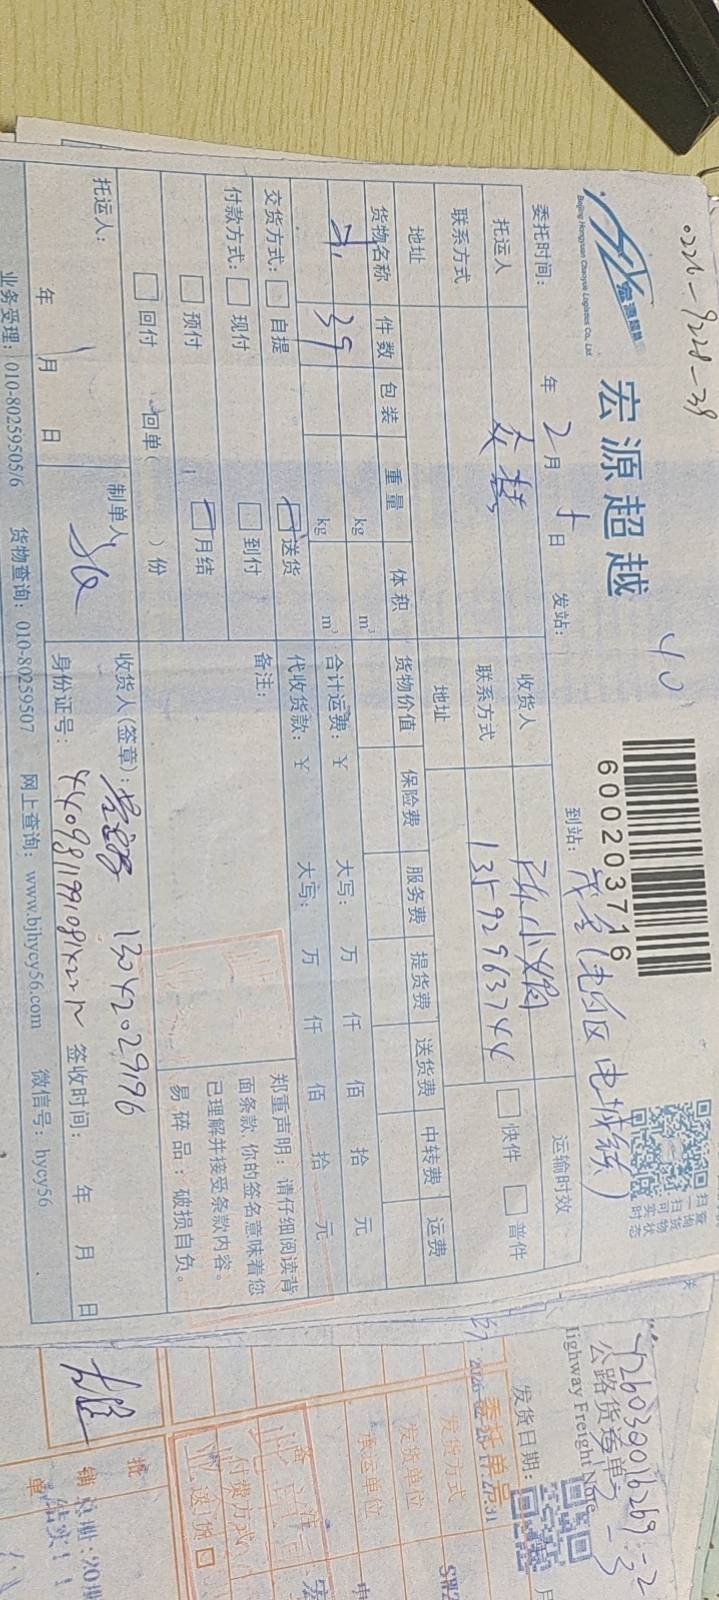 0226-9228-39
宏源超越
Beijing Hongyuan Chaoyue Logistics Co., Ltd.
宏源超越
40
600203716
扫一扫
查询货物
可实时状态
委托时间: 年 2月 日 发站: 到站: 茂名(电白区 电城镇)
托运人 收货人 运输时效
联系方式 联系方式 13592963744 快件 普件
地址 地址
货物名称 件数 包装 重量 体积 货物价值 保险费 服务费 提货费 送货费 中转费 运费
39 kg m³ 合计运费: ¥ 大写: 万 仟 佰 拾 元
kg m³ 代收货款: ¥ 大写: 万 仟 佰 拾 元
交货方式: 自提 送货 备注:
付款方式: 现付 到付
预付 月结
回付 回单( )份
郑重声明: 请仔细阅读背
面条款, 你的签名意味着您
已理解并接受条款内容。
易碎品: 破损自负。
托运人: 制单人 收货人(签章): 13042029196
年 月 日 身份证号: 签收时间: 年 月 日
业务受理: 010-80259505/6 货物查询: 010-80259507 网上查询: www.bjhycy56.com 微信号: hycy56
公路货运单
Highway Freight Note
发货日期: 月
委托单号
发货方式
发货单位
承运单位
备注
付费方式
送货